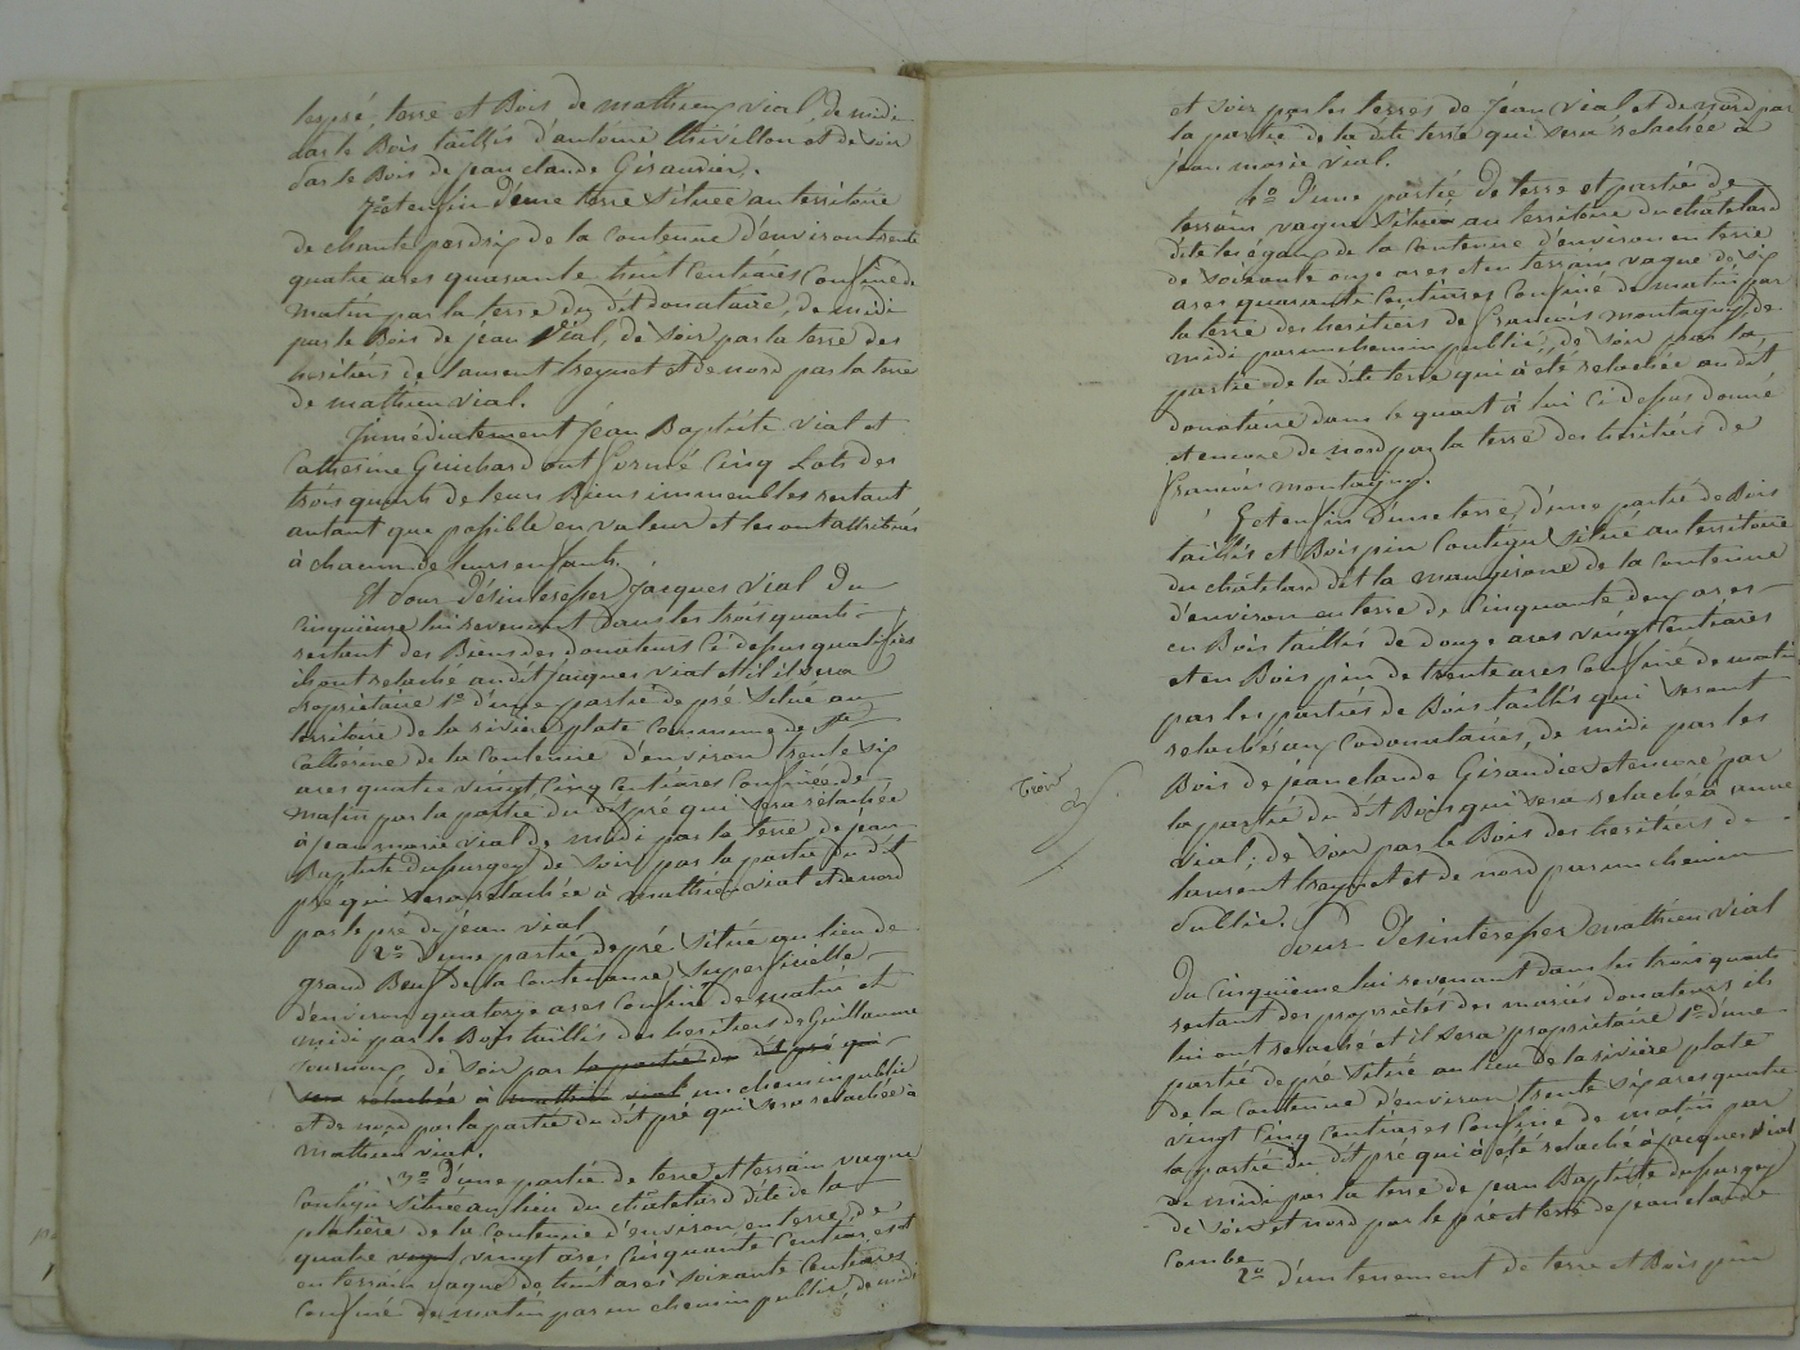 le pré, terre et Bois de mathieu vial, de midi
par le Bois taillis d'antoine thivillon et de soir
par le Bois de jean claude Giraudier.
7º et enfin d'une terre située au territoire
de chante perdrix de la Contenue d'environ trente
quatre ares quarante huit Centiares Confiné de
matin par la terre du dit donataire, de midi
par le Bois de jean Vial, de soir par la terre des
heritiers de laurent treynet et de nord par la terre
de mathieu vial.
Immédiatement Jean Baptiste vial et
Catherine Guichard ont formé Cinq Lots des
trois quarts de leurs Biens immeubles restant
autant que possible en valeur et les ont attribués
à chacun de leurs enfants.
Et pour Désinteresser Jacques Vial du
Cinquième lui revenant dans les trois quarts
restant des Biens des donateurs Ci dessus qualifiés
ils ont relaché au dit Jacques vial et il sera
Propriétaire 1º d'une partie de pré Situé au
territoire de la rivière plate Commune de Ste
Catherine de la Contenue d'environ trente six
ares quatre vingt Cinq Centiares Confinée de
matin par la partie du dit pré qui sera relachée
à jean marie vial de midi par la terre de jean
Baptiste Dupurgey de soir par la partie du dit
pré qui sera relachée à mathieu vial et de nord
par le pré de jean vial
2º D'une partie de pré Situé au lieu de
grand Beuf de la Contenance Superficielle
d'environ quatorze ares Confiné de matin et
midi par le Bois taillis des heritiers de Guillaume
de soir par la partie du dit pré qui
sera relachée à mathieu vial un chemin public
et de nord par la partie du dit pré qui sera relachée à
mathieu vial.
3º d'une partie de terre et terrain vague
Contigu Située au lieu du chatelard dite de la
platière de la Contenue d'environ en terre de
quatre vingt vingt ares Cinquante Centiares et
en terrain vague de huit ares soixante Centiares
Confiné de matin par un chemin public, de midi
et soir par les terres de Jean Vial et de nord par
la partie de la dite terre qui sera relachée à
jean marie vial.
4º D'une partie De terre et partie de
terrain vague Située au territoire du chatelard
dite les égaux de la Contenue d'environ en terre
de soixante onze ares et en terrain vague de six
ares quarante Centiares Confiné de matin par
la terre des heritiers de francois montagny, de
midi par un chemin public, de soir par la
partie de la dite terre qui à été relachée au dit
donataire dans le quart à lui Ci dessus donné
et encore de nord par la terre des heritiers de
francois montagny.
5º et enfin d'une terre, d'une partie de Bois
taillis et Bois pin Contigu Situé au territoire
du châtelard dit la de la Contenue
d'environ en terre de Cinquante deux ares
en Bois taillis de douze ares vingt Centiares
et en Bois pin de trente ares Confiné de matin
par les parties de Bois taillis qui seront
relachés aux Codonataires, de midi par les
Bois de jean claude Giraudier et encore par
la partie du dit Bois qui sera relaché à anne
vial; de soir par le Bois des heritiers de
laurent treynet et de nord par un chemin
public.
Trois
Pour Désinteresser mathieu vial
Du Cinquième lui revenant dans les trois quarts
restant des propriétés des mariés donateurs ils
lui ont relaché et il sera propriétaire 1º d'une
partie de pré Situé au lieu de la rivière plate
de la Contenue d'environ trente six ares quatre
vingt Cinq Centiares Confiné de matin par
la partie du dit pré qui à été relaché à Jacques Vial
de midi par la terre de jean Baptiste dupurgey
de soir et nord par le pré et terre de jean claude
Combe
2º d'un tenement de terre et Bois pin